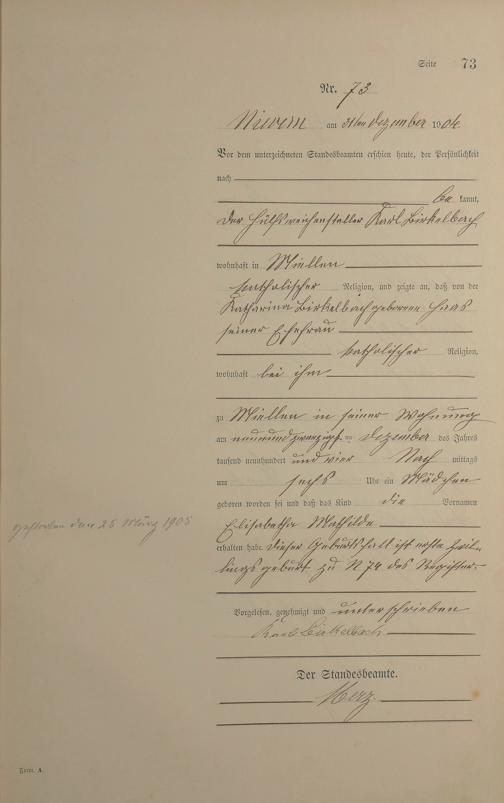 Seite 73
Nr. 73
Nievern am 31ten Dezember 1904
Vor dem unterzeichneten Standesbeamten erschien heute, der Persönlichkeit
nach
be kannt,
der Hülfsweichensteller Karl Birkelbach
wohnhaft in Miellen
katholischer Religion, und zeigte an, daß von der
Katharina Birkelbach geborenen Haas
seiner Ehefrau
katholischer Religion,
wohnhaft bei ihm
zu Miellen in seiner Wohnung
am neunundzwanzigsten Dezember des Jahres
tausend neunhundert und vier Nach mittags
um sechs Uhr ein Mädchen
geboren worden sei und daß das Kind die Vornamen
Elisabetha Mathilde
erhalten habe. Dieser Geburtsfall ist erste Zwil-
lingsgeburt zu N 74 des Registers.
gestorben den 25 März 1905
Vorgelesen, genehmigt und unterschrieben
Karl Birkelbach
Der Standesbeamte.
Merz.
Form. A.